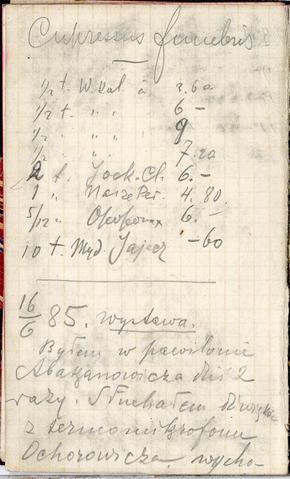 Cupressus funebris
1/2 t. W. kol à 3.60
1/2 t. " " 6 –
1/2 " " " 9
1/2 " " " 7.20
2 t. Jock. Cl. 6. –
1 " 4.80.
5/12 " Opoponax 6. –
10 t. Myd. Jajecz – 60
16/6 85. wystawa.
Byłem w pawilonie
Abakanowicza dziś 2
razy. Słuchałem
z termomikrofonu
Ochorowicza, wycho-